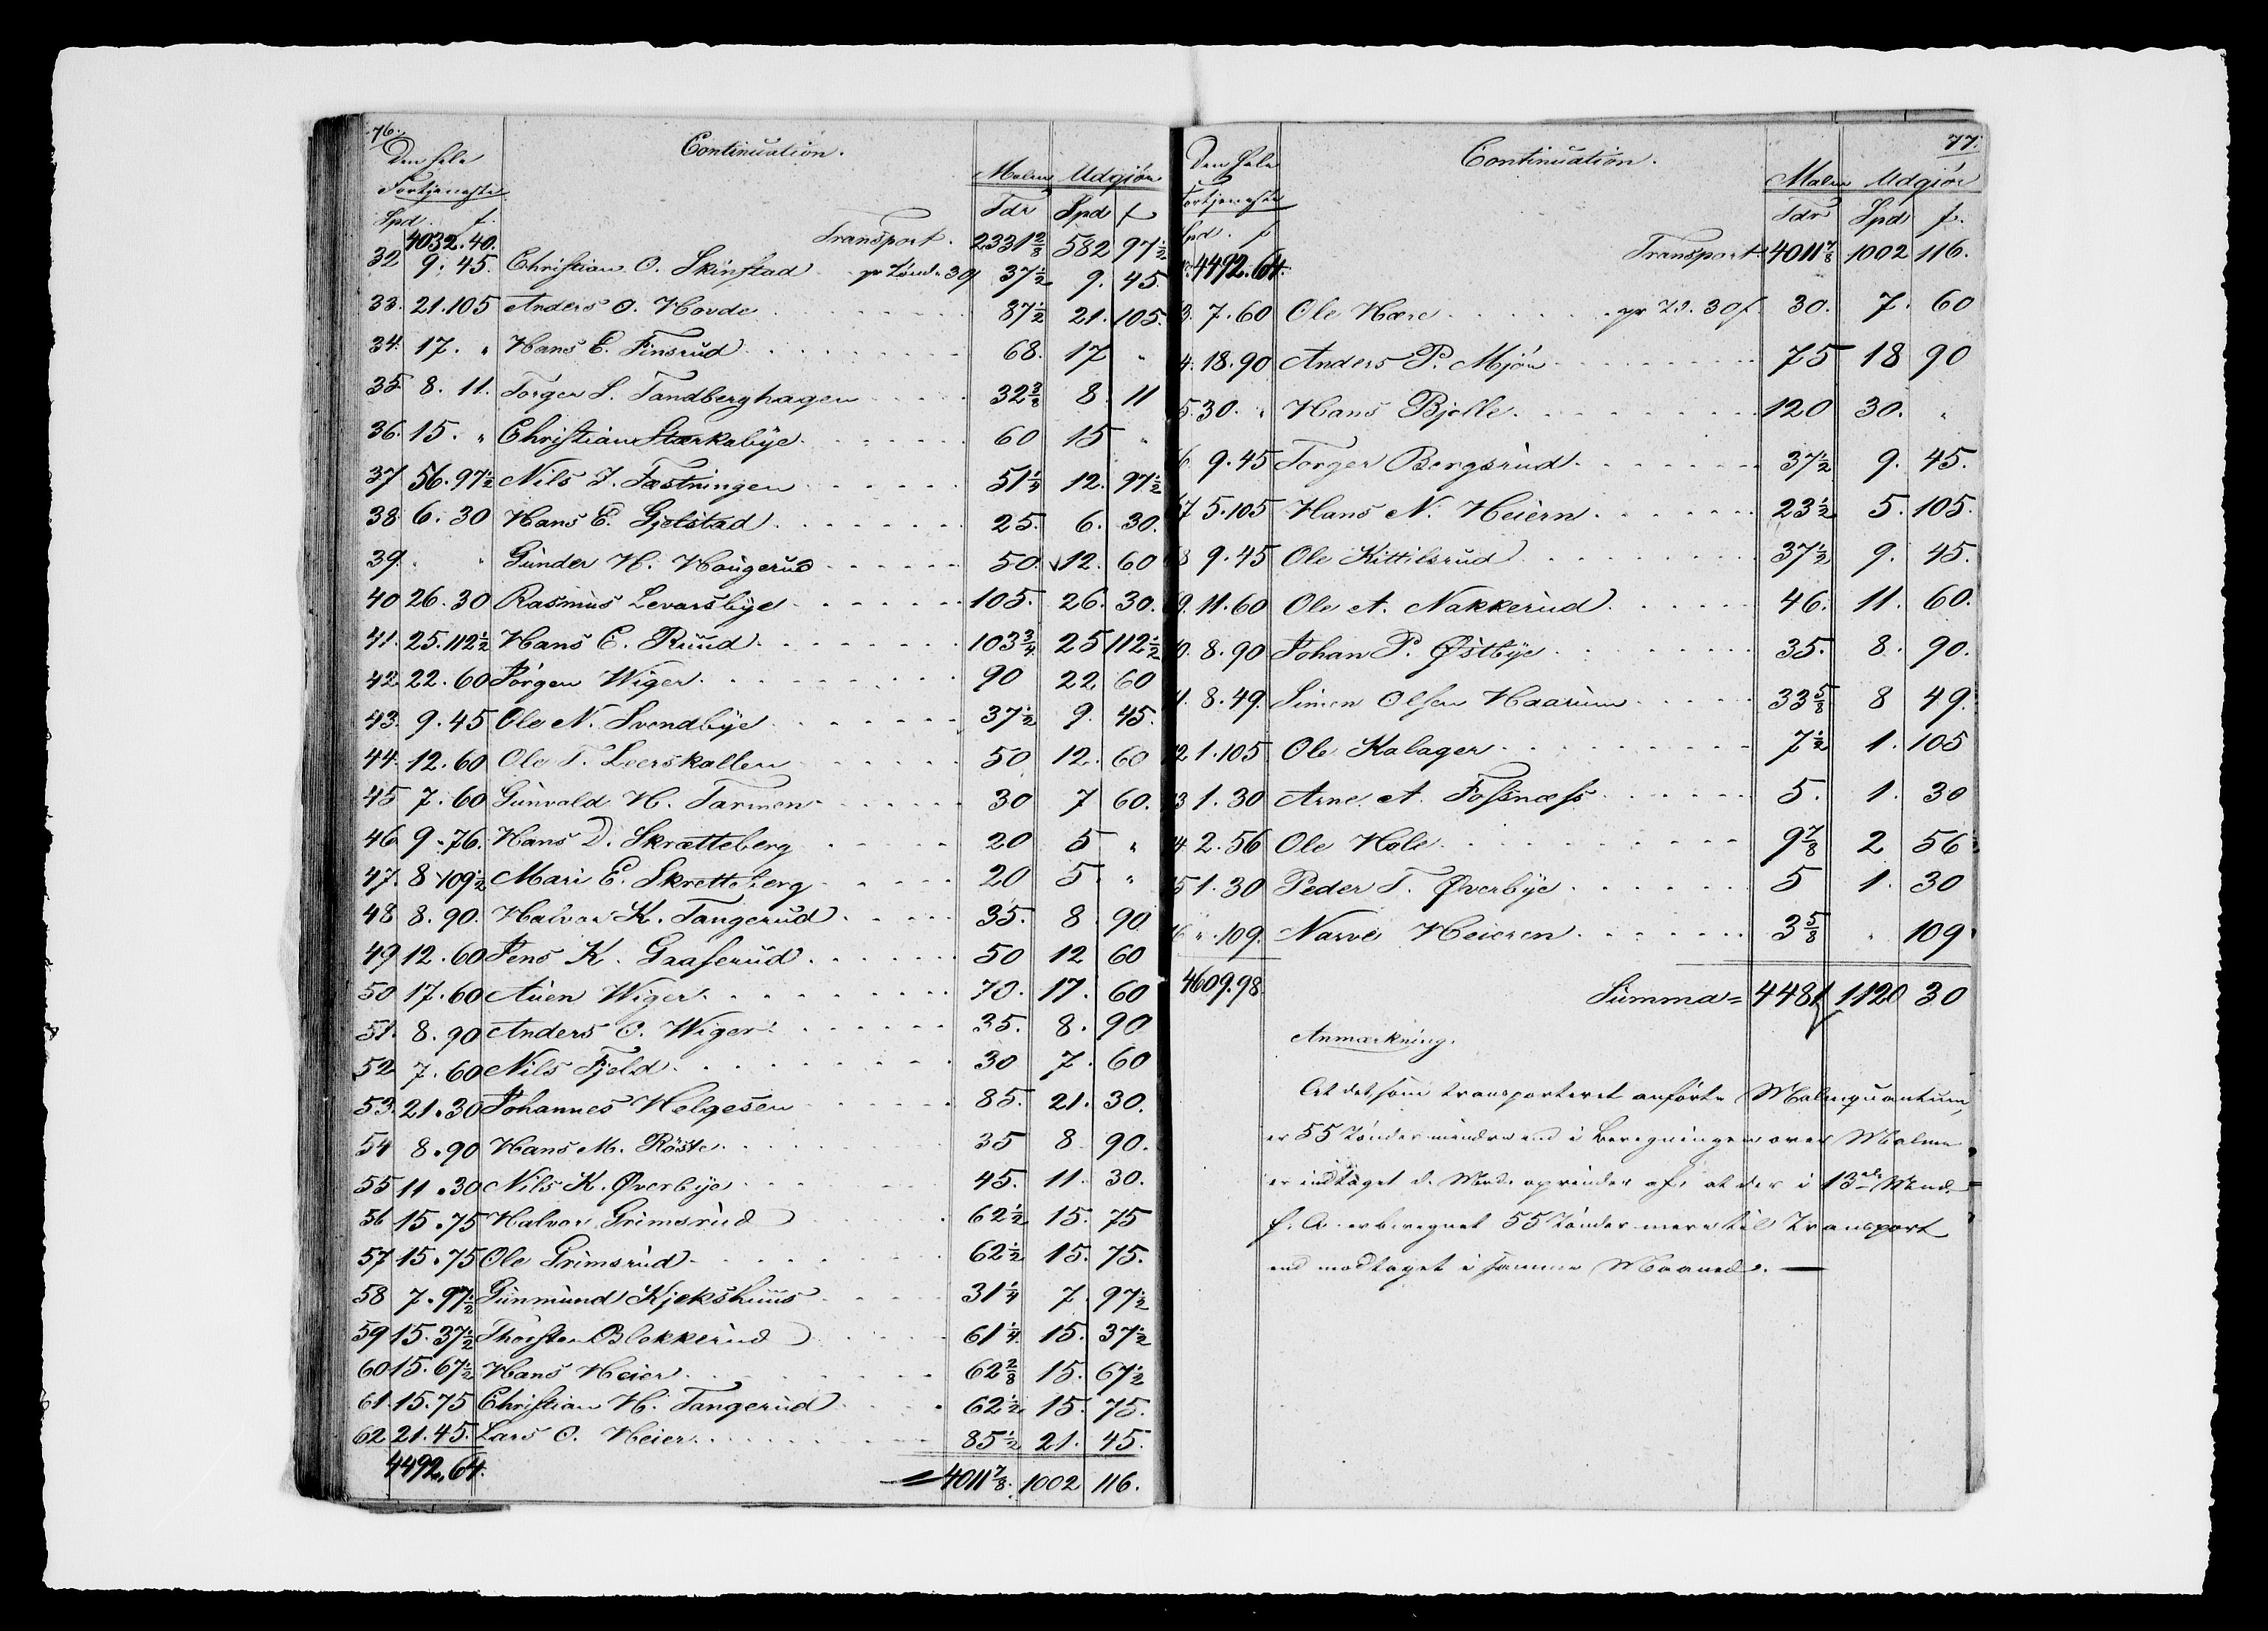 76.
Den hele Continuation.
Fortjeneste Malm Udgiør
Spd f. Tdr Spd f
4032.40. Transport. 2331 2/8 582 97 1/2
32 9.45. Christian O. Skinstad pr Tønde 30f 37 1/2 9. 45.
33. 21.105 Anders O. Hovde 87 1/2 21. 105.
34. 17. " Hans E. Finsrud 68. 17 "
35 8. 11. Torger S. Tandberghagen 32 3/8 8 11
36. 15. " Christian Stærkebye 60 15 "
37 56.97 1/2 Nils J. Fæstningen 51 1/4 12. 97 1/2
38 6. 30 Hans E. Gjelstad 25. 6. 30.
39. " " Gunder H. Hougerud 50 12. 60
40 26. 30 Rasmus Levorsbye 105. 26. 30.
41. 25.112 1/2 Hans E. Ruud 103 3/4 25 112 1/2
42 22. 60 Jørgen Wiger 90 22 60
43. 9. 45 Ole N. Svendbye 37 1/2 9. 45.
44. 12. 60 Ole T. Leerskallen 50 12. 60
45 7. 60 Gunvald H. Tarmen 30 7 60.
46 9.76. Hans D. Skrætteberg 20 5 "
47. 8 109 1/2 Mari E. Skretteberg 20 5. "
48 8. 90. Halvor K. Tangerud 35. 8. 90
49 12. 60 Jens K. Gaaserud 50 12 60
50 17. 60 Auen Wiger 70. 17. 60
51. 8. 90 Anders O. Wiger 35. 8. 90
52 7. 60 Nils Fjeld 30 7. 60
53. 21. 30 Johannes Helgesen 85. 21. 30.
54 8. 90 Hans M. Röste 35 8 90.
55 11. 30 Nils K. Øverbye 45. 11. 30.
56 15. 75 Halvor Grimsrud 62 1/2 15. 75
57 15. 75 Ole Grimsrud 62 1/2 15. 75.
58 7. 97 1/2 Gunmund Kjekshuus 31 1/4 7 97 1/2
59 15. 37 1/2 Thorsten Blekkerud 61 1/4 15. 37 1/2
60 15. 67 1/2 Hans Heier 62 2/8 15. 67 1/2
61. 15. 75 Christian H. Tangerud 62 1/2 15. 75.
62 21. 45. Lars O. Heier 85 1/2 21. 45.
4492.64. 4011 7/8. 1002 116.
77.
Den hele Continuation.
Fortjeneste Malm Udgiør
Spd. f Tdr Spd f.
4492.64. Transport 4011 7/8 1002 116.
3. 7. 60 Ole Hære pr Td. 30f. 30. 7. 60
4. 18.90 Anders P. Mjøn 75 18 90
5. 30. " Hans Bjelle 120 30. "
6 9.45 Torger Bergsrud 37 1/2 9. 45.
7 5.105 Hans N. Heiern 23 1/2 5. 105.
8 9.45 Ole Kittilsrud 37 1/2 9. 45.
9. 11.60 Ole A. Nakkerud 46. 11. 60.
0. 8.90 Johan P. Østbye 35. 8. 90.
1. 8.49. Simen Olsen Haarum 33 5/8 8 49.
2 1.105 Ole Kalager 7 1/2 1. 105
3 1. 30 Arne A. Fossnæss 5. 1. 30
4 2. 56 Ole Hole 9 7/8 2 56
5 1. 30 Peder T. Øverbye 5 1. 30
6 ". 109. Narve Heieren 3 5/8 " 109
4609.98. Summa = 4481 1120 30
Anmærkning.
At det som transporteret anførte Malmquantum,
er 55 Tønder mindre end i Beregningen over Malm
er indtaget d. oprinder af, at der i 13de Maad.
f. A. er beregnet 55 Tønder mere til Transport
end modtaget i samme Maaned. —